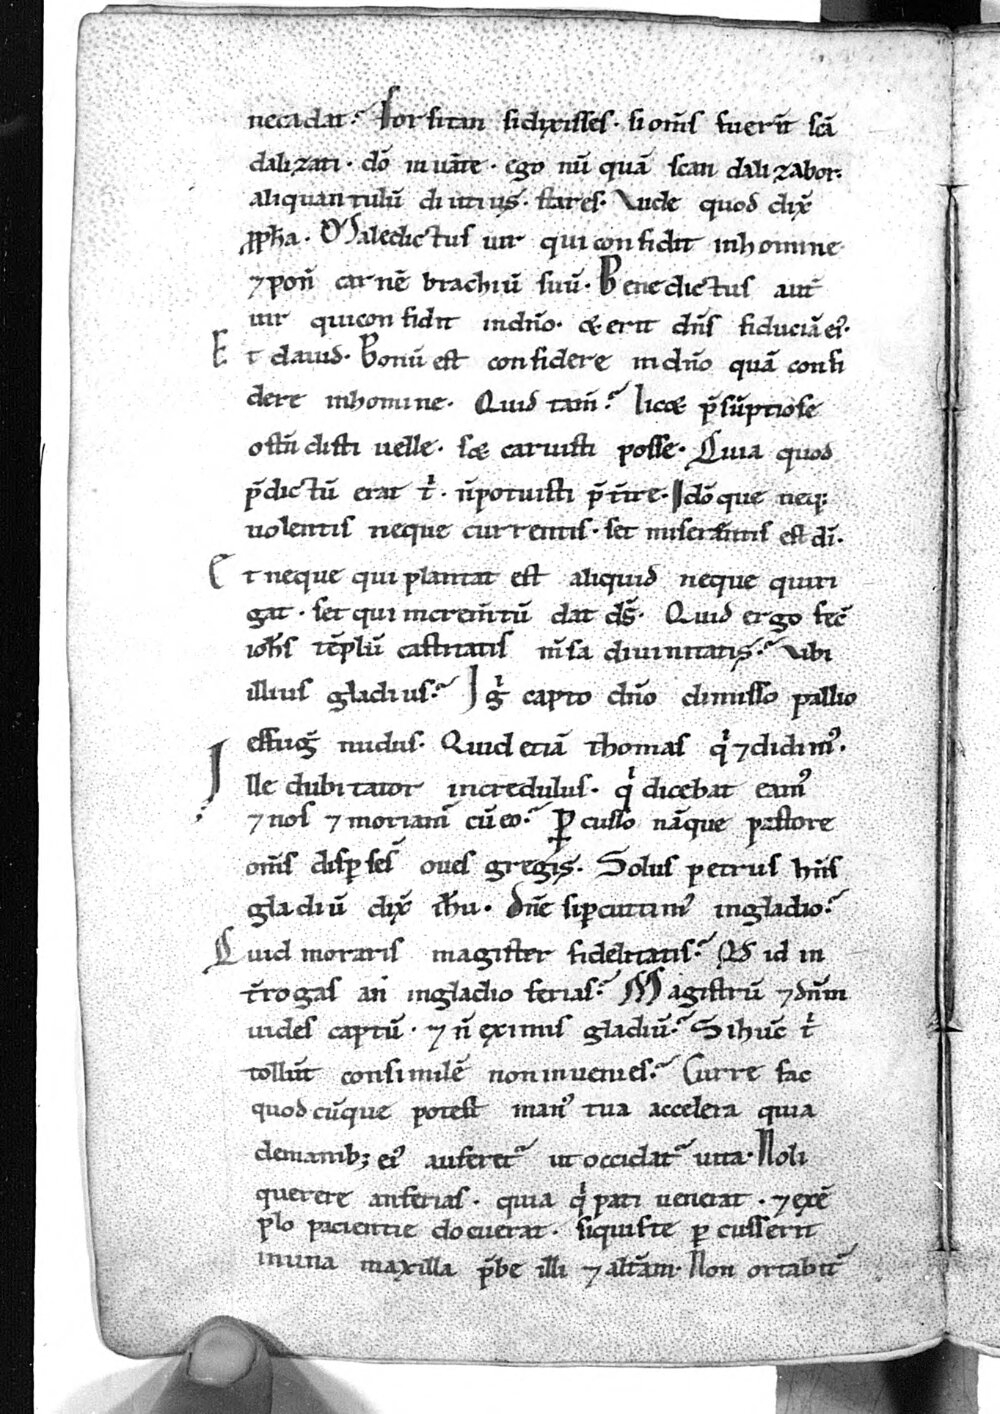 necadat. Forsitan sidixisses. si om̄s fuerīt scā
dalizati. dō iuuāte. ego nū quā scan dalizabor.
aliquantulū diutius. stares. Vnde quod dix̄
ꝓph̄a. Maledictus uir qui confidit inhomine.
⁊ pon̄ carnē brachiū suū. Benedictus aut̄
uir quiconfidit indn̄o. & erit dn̄s fiduciā ei᾽.
Et dauid. Bonū est confidere indn̄o quā confi
dere inhomine. Quid tam̄? licet p̄sūptiose
ostn̄disti uelle. set caruisti posse. Quia quod
p̄dictū erat t͛. n̄potuisti p̄t̄ire. Idōque neq;
uolentis neque currentis. set miserātis est dī.
Et neque qui plantat est aliquid neque quiri
gat. set qui increm̄tū dat ds̄. Quid ergo fec̄
ioh̄s tēplū castitatis m̄sa diuinitatis? Vbi
illius gladius? Ig͛ capto dn̄o dimisso pallio
effuḡ nudus. Quid etiā thomas q͛ ⁊ didim᾽.
Ille dubitator incredulus. q͛ dicebat eam᾽
⁊ nos ⁊ moriam̄ cū eo? ꝑcusso nāque pastore
om̄s disꝑses̄ oues gregis. Solus petrus hn̄s
gladiū dix̄ ih̄u. dn̄e siꝑcutim᾽ ingladio?
Quid moraris magister fidelitatis? Quid in
t̄rogas an ingladio ferias? Magistrū ⁊ dn̄m
uides captū. ⁊ n̄ eximis gladiū? Si hūc t͛
tollūt consimilē non inuenies? Curre fac
quod cūque potest man᾽ tua accelera quia
demanib; ei᾽ auferet᷑ ut occidat᷑ uita. Noli
querere anferias. quia q͛ pati uenerat. ⁊ exē
plo pacientie docuerat. siquiste ꝑcusserit
inuna maxilla p̄be illi ⁊ alt̄am. Non ortabit᷑